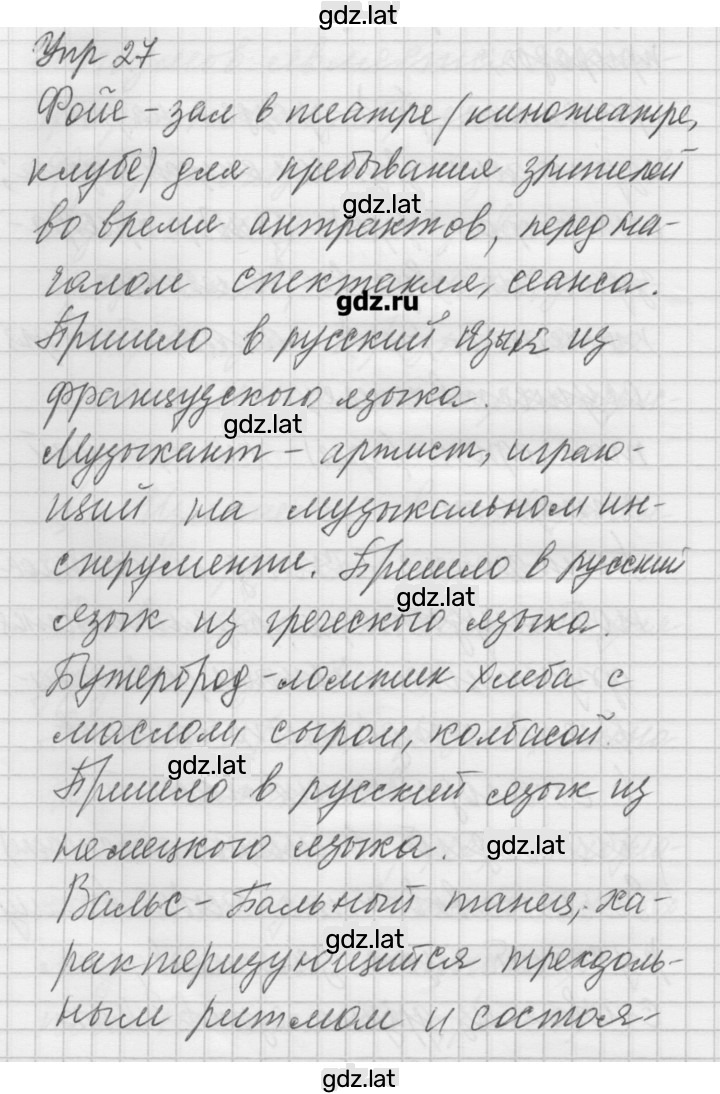 gdz.lat
Упр 27
Фойе - зал в театре (кинотеатре,
клубе) для пребывания зрителей
gdz.lat
во время антрактов, перед на-
чалом спектакля, сеанса.
gdz.ru
Пришло в русский язык из
французского языка.
gdz.lat
Музыкант - артист, играю-
щий на музыкальном ин-
струменте. Пришло в русский
gdz.lat
язык из греческого языка.
Бутерброд - ломтик хлеба с
маслом, сыром, колбасой.
gdz.lat
Пришло в русский язык из
немецкого языка.
gdz.lat
Вальс - бальный танец, ха-
gdz.lat
рактеризующийся трехдоль-
ным ритмом и состоя-
gdz.lat